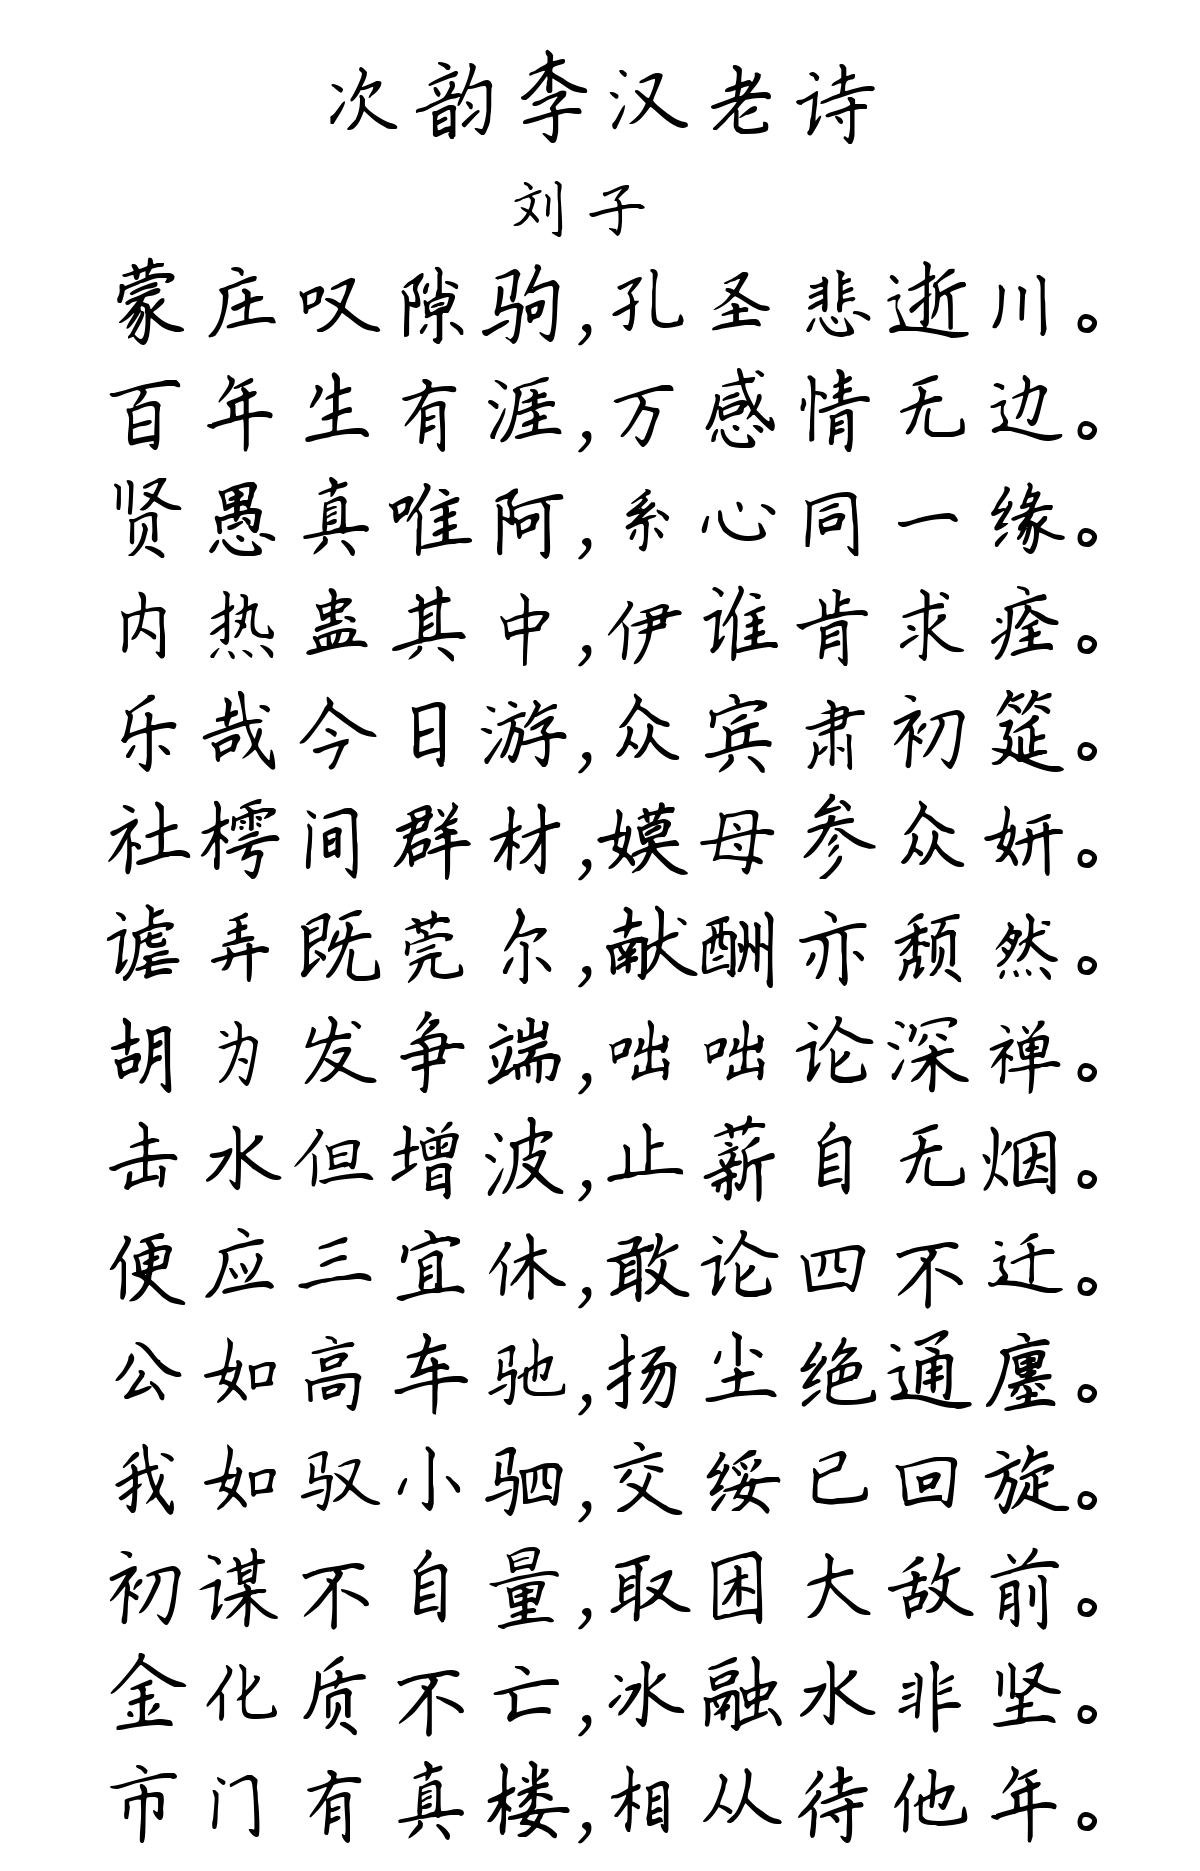 次韵李汉老诗
刘子
蒙庄叹隙驹,孔圣悲逝川。
百年生有涯,万感情无边。
贤愚真唯阿,系心同一缘。
内热蛊其中,伊谁肯求痊。
乐哉今日游,众宾肃初筵。
社樗间群材,嫫母参众妍。
谑弄既莞尔,献酬亦颓然。
胡为发争端,咄咄论深禅。
击水但增波,止薪自无烟。
便应三宜休,敢论四不迁。
公如高车驰,扬尘绝通廛。
我如驭小驷,交绥已回旋。
初谋不自量,取困大敌前。
金化质不亡,冰融水非坚。
市门有真楼,相从待他年。